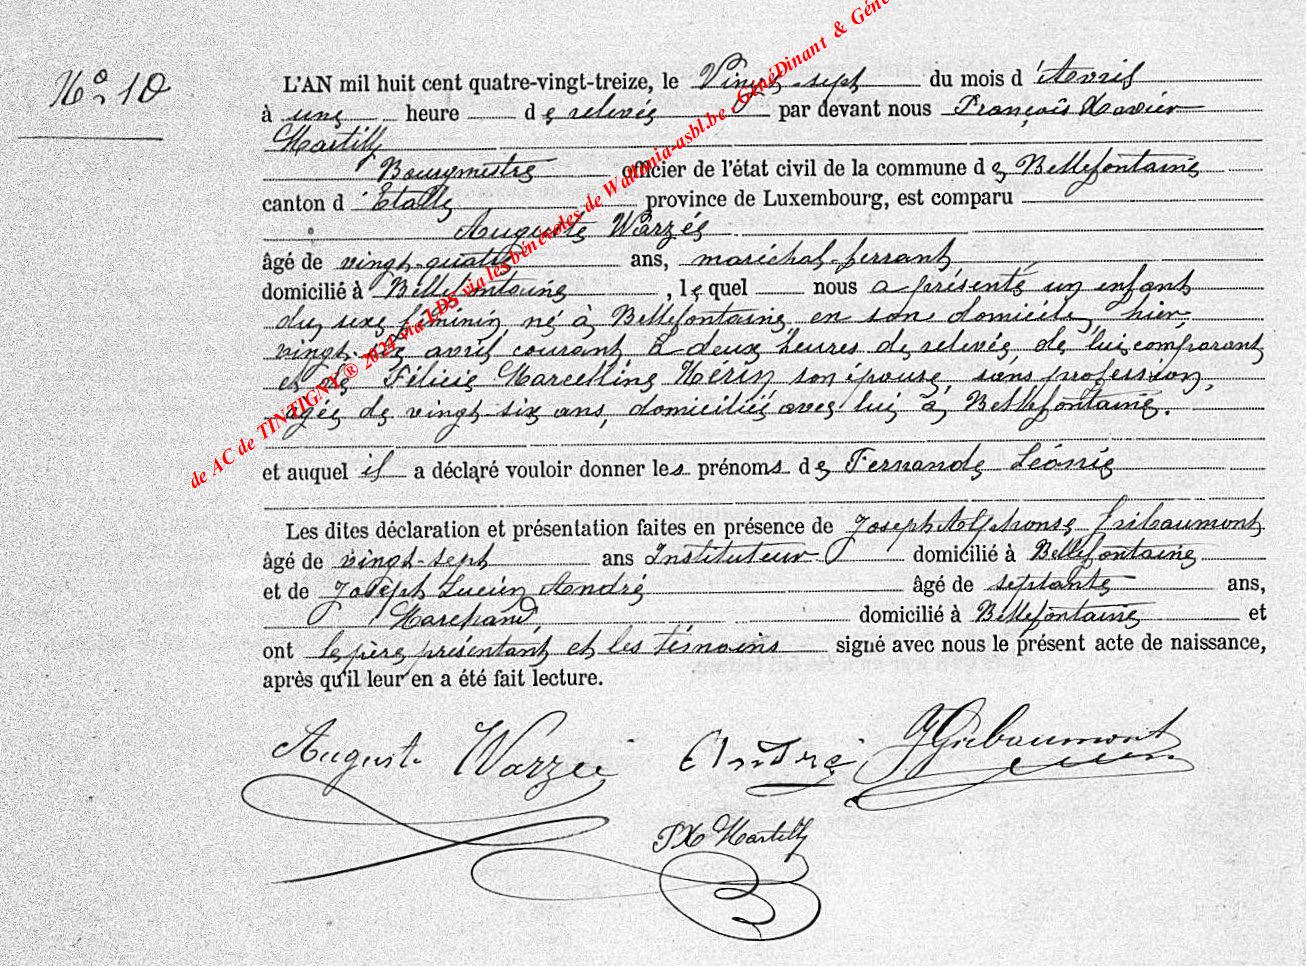 N° 10
L'AN mil huit cent quatre-vingt-treize, le Vingt-sept du mois d'Avril
à une heure de relevée par devant nous François Xavier
Martilly
Bourgmestre officier de l'état civil de la commune de Bellefontaine
canton d'Etalle province de Luxembourg, est comparu
Auguste Warzée
âgé de vingt-quatre ans, maréchal-ferrant
domicilié à Bellefontaine, lequel nous a présenté un enfant
du sexe féminin, né à Bellefontaine, en son domicile, hier,
vingt-six avril courant à deux heures de relevée, de lui comparant
et de Félicie Marcelline Hérin son épouse, sans profession,
âgée de vingt-six ans, domiciliée avec lui à Bellefontaine.
et auquel il a déclaré vouloir donner les prénoms de Fernande Léonie
Les dites déclaration et présentation faites en présence de Joseph Alphonse Gribaumont
âgé de vingt-sept ans Instituteur domicilié à Bellefontaine
et de Joseph Lucien André âgé de septante ans,
Marchand, domicilié à Bellefontaine et
ont le père présentant et les témoins signé avec nous le présent acte de naissance,
après qu'il leur en a été fait lecture.
Auguste Warzée André JGribaumont
FX Martilly
de AC de TINTIGNY ® 2024 via LDS via les bénévoles de Wallonia-asbl.be - GénéDinant & Géné